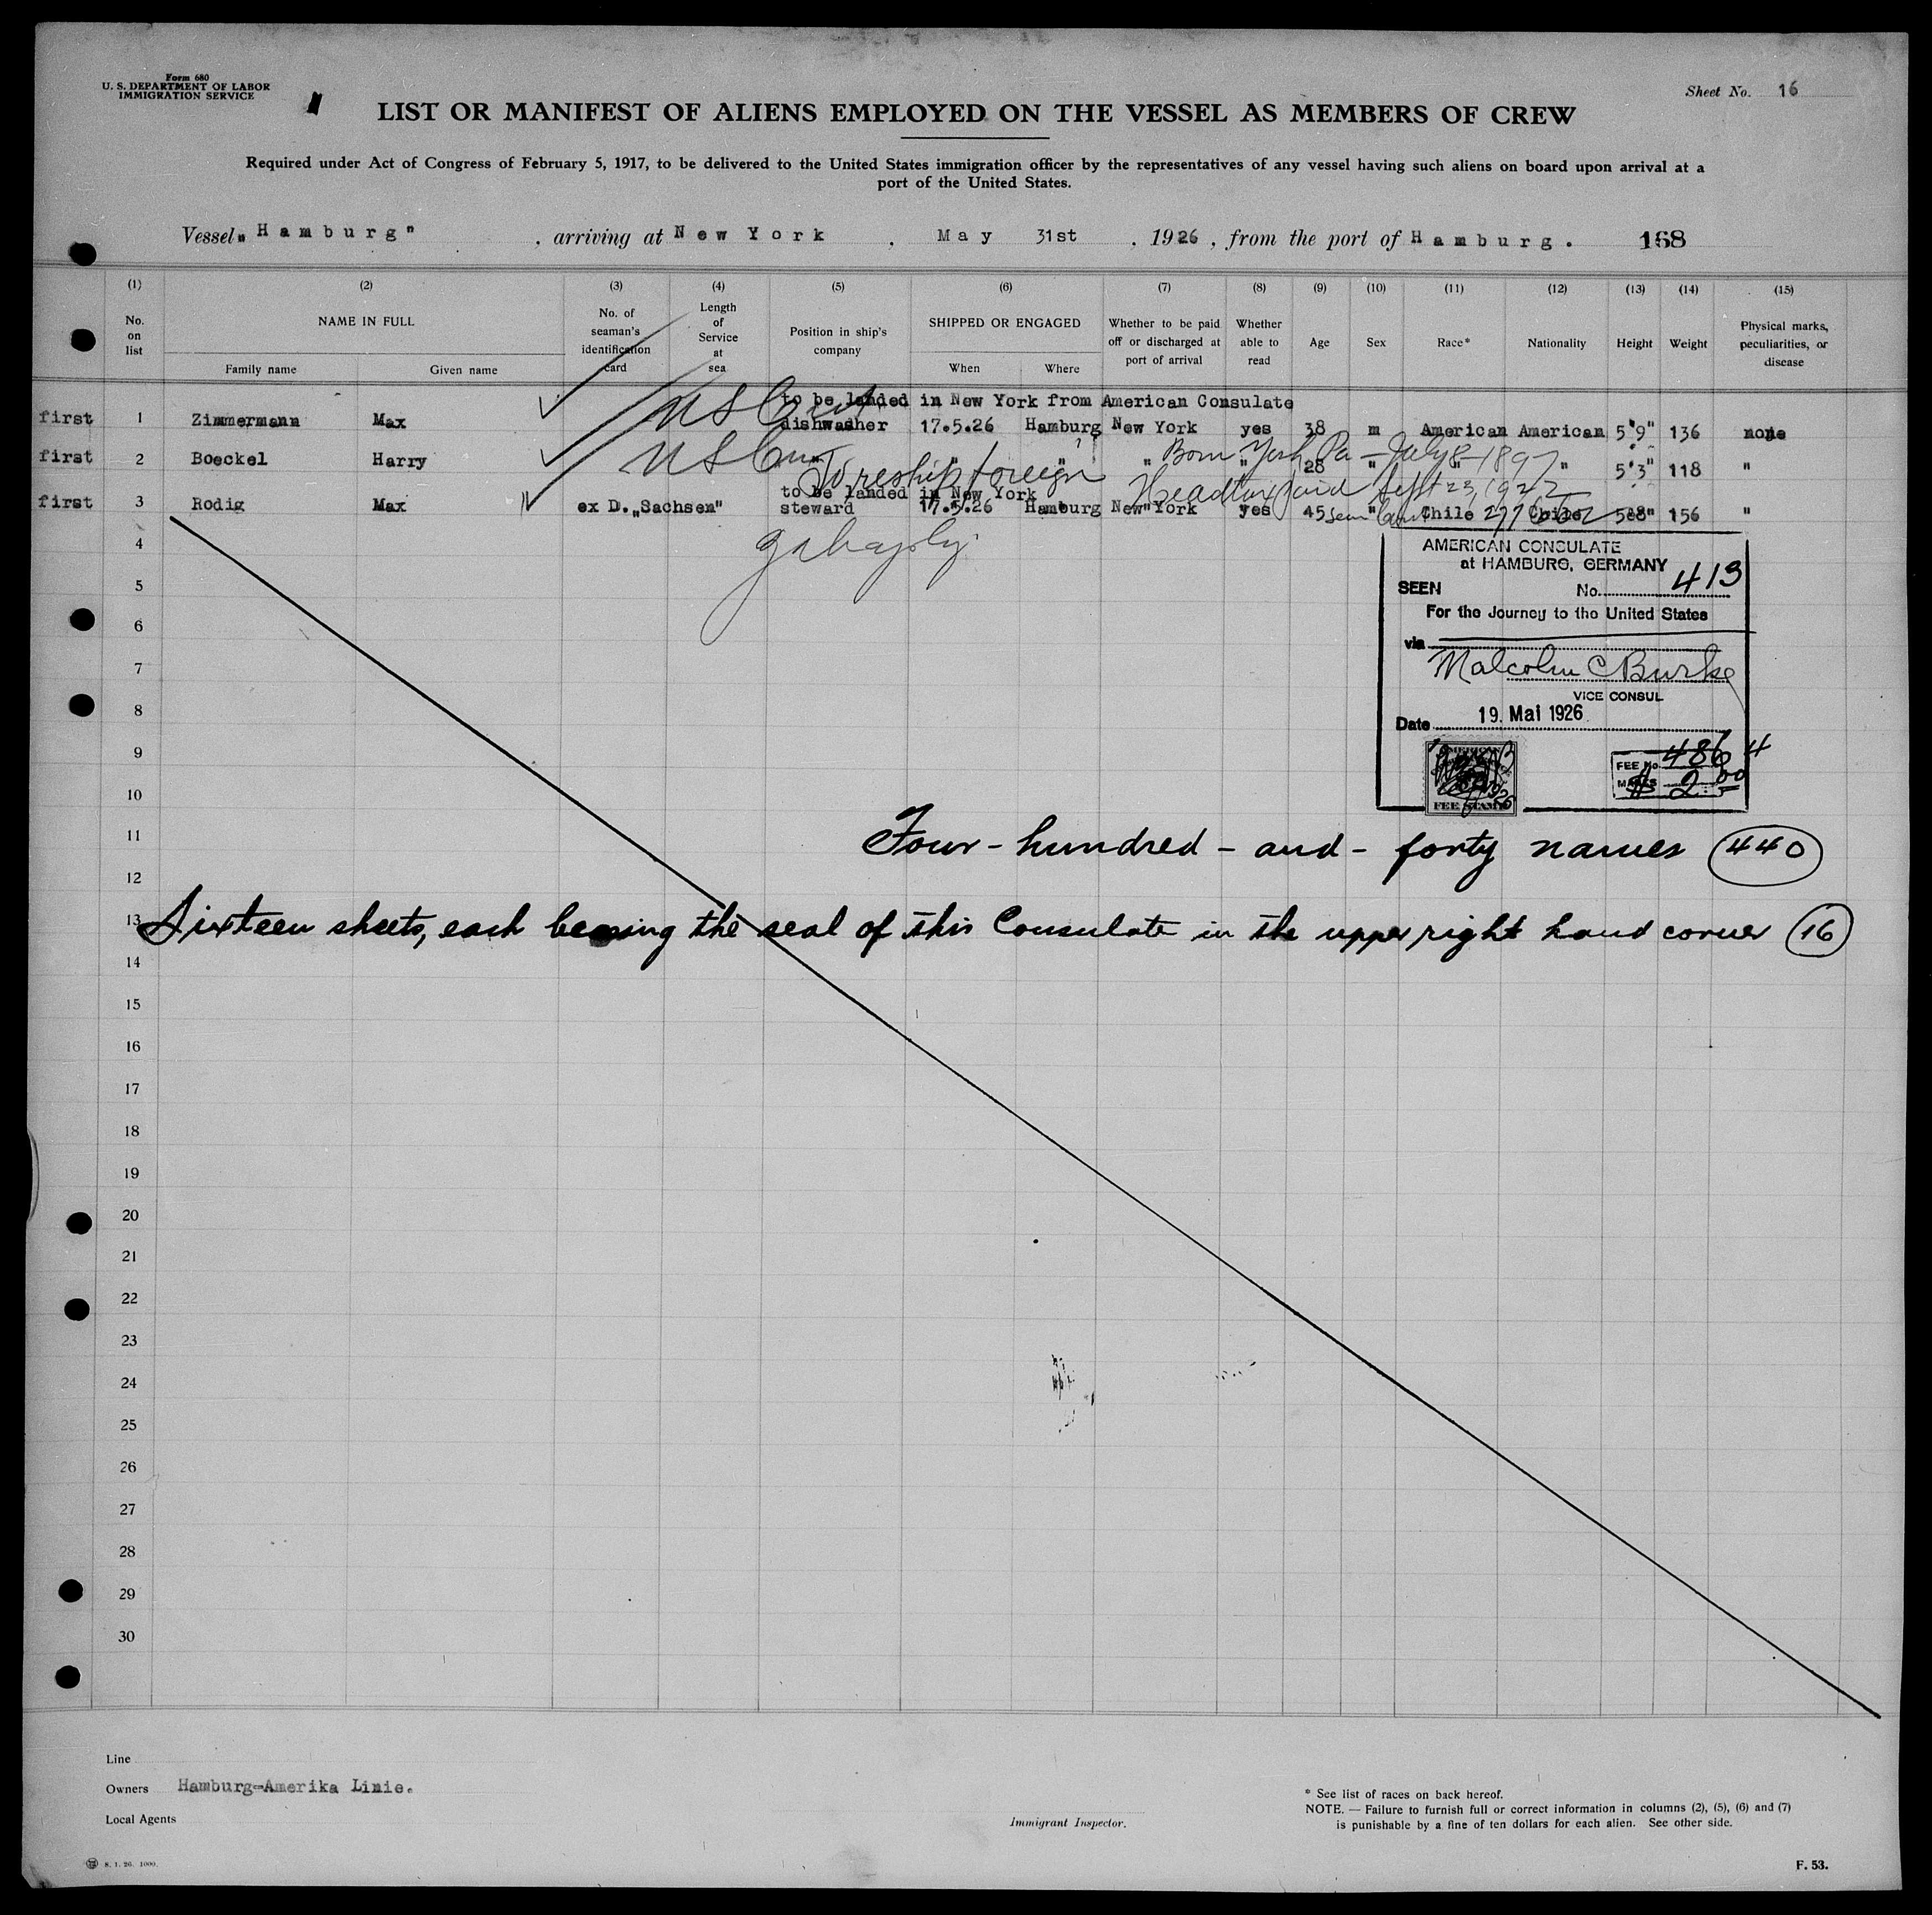 Form 680
U. S. DEPARTMENT OF LABOR
IMMIGRATION SERVICE
Sheet No. 16
LIST OR MANIFEST OF ALIENS EMPLOYED ON THE VESSEL AS MEMBERS OF CREW
Required under Act of Congress of February 5, 1917, to be delivered to the United States immigration officer by the representatives of any vessel having such aliens on board upon arrival at a
port of the United States.
Vessel „Hamburg", arriving at New York, May 31st, 1926, from the port of Hamburg. 168
(1) (2) (3) (4) (5) (6) (7) (8) (9) (10) (11) (12) (13) (14) (15)
No. on list
NAME IN FULL
Family name Given name
No. of seaman's identification card
Length of Service at sea
Position in ship's company
SHIPPED OR ENGAGED
When Where
Whether to be paid off or discharged at port of arrival
Whether able to read
Age Sex Race* Nationality Height Weight
Physical marks, peculiarities, or disease
to be landed in New York from American Consulate
first 1 Zimmermann Max US Cit dishwasher 17.5.26 Hamburg New York yes 38 m American American 5'9" 136 none
Born York Pa - July 8 - 1897
first 2 Boeckel Harry US Cit " " " " " 28 " " " 5'3" 118 "
To reship foreign Headtax paid Sept 23, 1922
to be landed in New York
first 3 Rodig Max ex D. „Sachsen" steward 17.5.26 Hamburg New York yes 45 " Chile Chile 5'8" 156 "
4
AMERICAN CONSULATE
at HAMBURG, GERMANY
5
SEEN No. 413
6
For the Journey to the United States
via
7
Malcolm C Burke
VICE CONSUL
8
Date 19. Mai 1926
9
FEE No. 4864
MARKS $ 2.00
FEE STAMP
10
11
Four - hundred - and - forty names (440)
12
13
Sixteen sheets, each bearing the seal of this Consulate in the upper right hand corner (16)
14
15
16
17
18
19
20
21
22
23
24
25
26
27
28
29
30
Line
Owners Hamburg-Amerika Linie.
Local Agents
Immigrant Inspector.
* See list of races on back hereof.
NOTE. — Failure to furnish full or correct information in columns (2), (5), (6) and (7)
is punishable by a fine of ten dollars for each alien. See other side.
8. 1. 26. 1000.
F. 53.